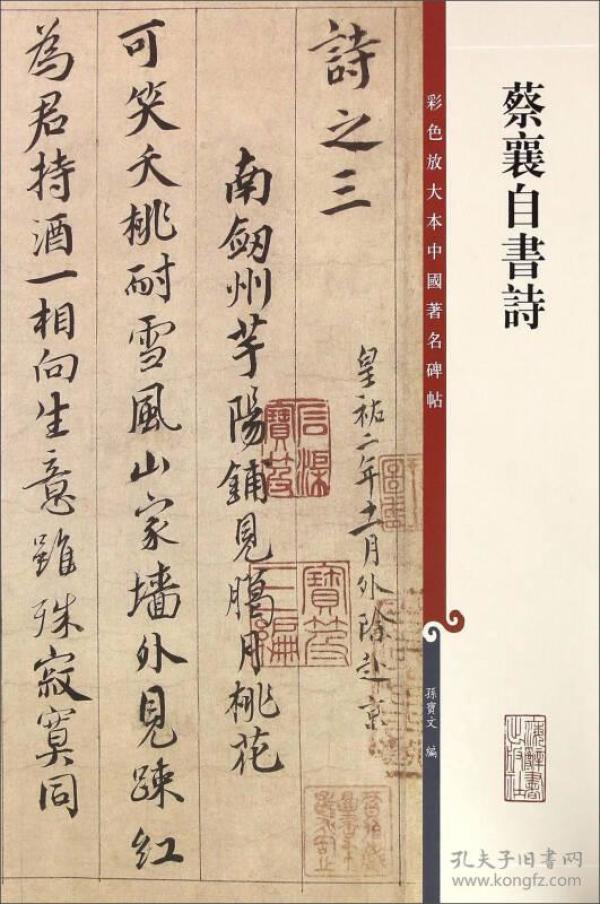 蔡襄自書詩
彩色放大本中國著名碑帖
孫寶文 編
詩之三
皇祐二年十一月外除赴京
南劔州芋陽鋪見臘月桃花
可笑夭桃耐雪風山家墻外見疎紅
為君持酒一相向生意雖殊寂寞同
寶笈三編
上海辭書出版社
孔夫子旧书网
www.kongfz.com